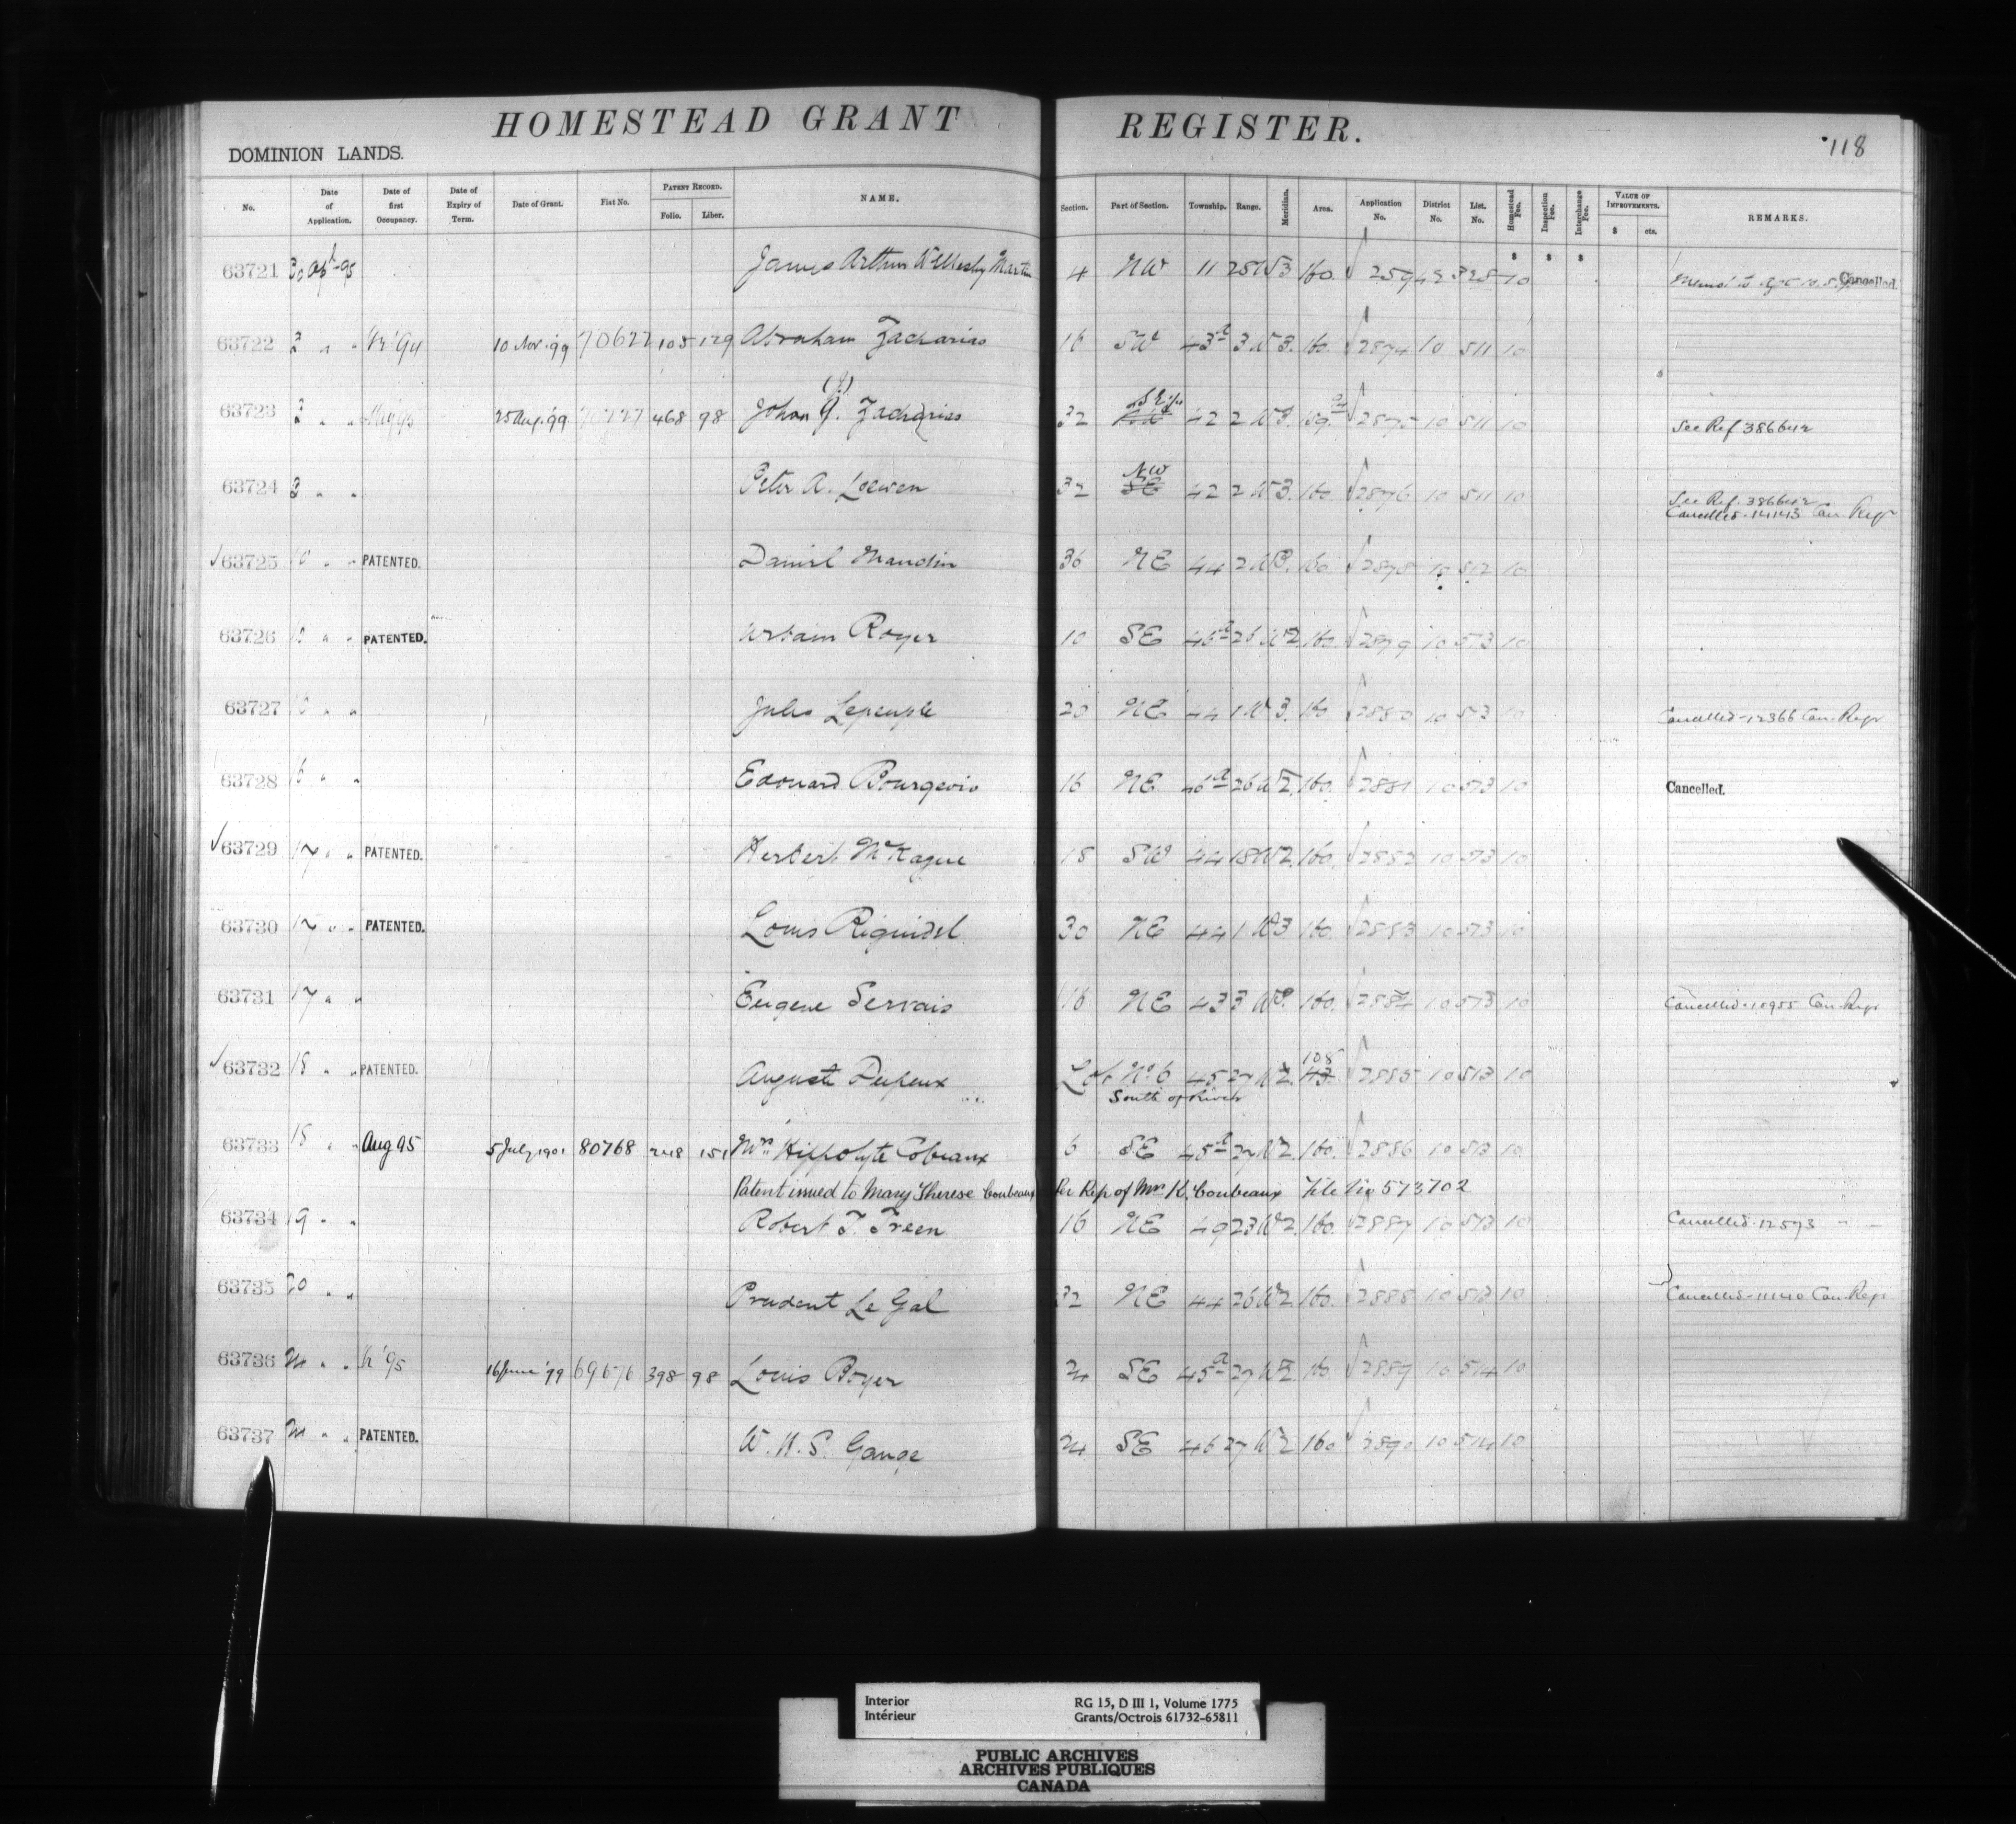 HOMESTEAD GRANT REGISTER.
118
DOMINION LANDS.
No. Date of Application. Date of first Occupancy. Date of Expiry of Term. Date of Grant. Fiat No. PATENT RECORD. Folio. Liber. NAME. Section. Part of Section. Township. Range. Meridian. Area. Application No. District No. List. No. Homestead Fee. Inspection Fee. Interchange Fee. VALUE OF IMPROVEMENTS. $ cts. REMARKS.
$ $ $
63721 James Arthur Martin 4 NW 11 25 W3 160 10 Cancelled.
63722 2 " " 10 Nov. '99 70622 105 129 Abraham Zacharias 16 SW 43 3 W3. 160. 2874 10 511 10
63723 2 " " 25 Aug. '99 468 98 Johan Zacharias 32 42 2 W3. 159. 2875 10 511 10 See Ref 386642
63724 2 " " Peter A. Loewen 32 NW SE 42 2 W3. 160. 2876 10 511 10 See Ref. 386642
Cancelled - 14143 Can. Regr
63725 10 " " PATENTED. Daniel Maudin 36 NE 44 2 W3. 160 2878 10 512 10
63726 " " PATENTED. Urbain Royer 10 SE 26 W2 160. 2879 10 513 10
63727 " " Jules Lepeuple 20 NE 44 1 W3. 160 2880 10 513 10 Cancelled - 12366 Can. Regr
63728 16 " " Edouard Bourgeois 16 NE 46 26 W2. 160. 2881 10 513 10 Cancelled.
63729 17 " " PATENTED. Herbert McKague 18 SW 44 18 W2. 160. 2882 10 513 10
63730 17 " " PATENTED. Louis Riguidel 30 NE 44 1 W3 160. 2883 10 513 10
63731 17 " " Eugene Servais 16 NE 43 3 W3. 160. 2884 10 513 10 Cancelled - 10955 Can. Regr
63732 18 " " PATENTED. Auguste Lot No. 6 45 27 W2. 108 2885 10 513 10
South of River
63733 18 " " Aug 95 5 July 1901 80768 248 151 Mrs. Hippolyte Cobeaux 6 SE 45 27 W2. 160. 2886 10 513 10
Patent issued to Mary Therese Coubeaux Per Rep of Mrs. H. Coubeaux File No 573702
63734 19 " " Robert T. Treen 16 NE 49 23 W2. 160. 2887 10 513 10 Cancelled - 12593 " "
63735 20 " " Prudent Le Gal 32 NE 44 26 W2. 160. 2888 10 513 10 Cancelled - 11140 Can. Regr
63736 " " '95 16 June '99 69676 398 98 Louis Boyer 24 SE 45 27 W2. 160. 2889 10 514 10
63737 " " PATENTED. W. H. S. Gange 24 SE 46 27 W2 160 2890 10 514 10
Interior
Intérieur
RG 15, D III 1, Volume 1775
Grants/Octrois 61732-65811
PUBLIC ARCHIVES
ARCHIVES PUBLIQUES
CANADA